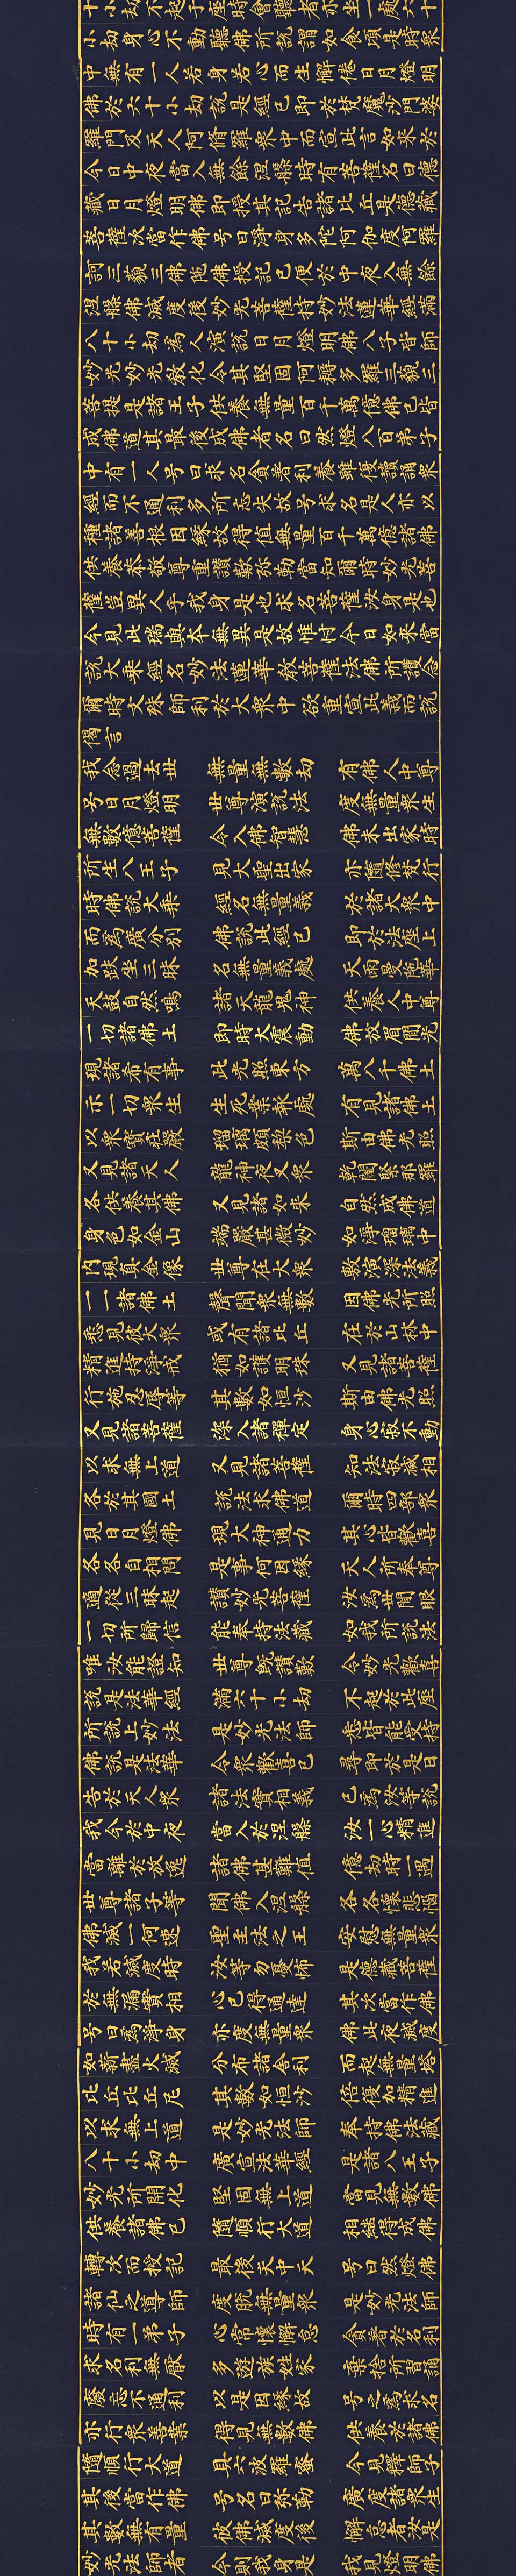 十小劫不起于座時會聽者亦坐一處六十
小劫身心不動聽佛所說謂如食頃是時衆
中無有一人若身若心而生懈倦日月燈明
佛於六十小劫說是經已即於梵魔沙門婆
羅門及天人阿脩羅衆中而宣此言如來於
今日中夜當入無餘涅槃時有菩薩名曰德
藏日月燈明佛即授其記告諸比丘是德藏
菩薩次當作佛号曰淨身多陀阿伽度阿羅
訶三藐三佛陀佛授記已便於中夜入無餘
涅槃佛滅度後妙光菩薩持妙法蓮華經滿
八十小劫爲人演說日月燈明佛八子皆師
妙光妙光教化令其堅固阿耨多羅三藐三
菩提是諸王子供養無量百千萬億佛已皆
成佛道其最後成佛者名曰然燈八百弟子
中有一人号曰求名貪著利養雖復讀誦衆
經而不通利多所忘失故号求名是人亦以
種諸善根因緣故得值無量百千萬億諸佛
供養恭敬尊重讚歎弥勒當知爾時妙光菩
薩豈異人乎我身是也求名菩薩汝身是也
今見此瑞與本無異是故惟忖今日如來當
說大乘經名妙法蓮華教菩薩法佛所護念
爾時文殊師利於大衆中欲重宣此義而說
偈言
我念過去世 無量無數劫 有佛人中尊
号日月燈明 世尊演說法 度無量衆生
無數億菩薩 令入佛智慧 佛未出家時
所生八王子 見大聖出家 亦隨修梵行
時佛說大乘 經名無量義 於諸大衆中
而爲廣分別 佛說此經已 即於法座上
加趺坐三昧 名無量義處 天雨曼陀華
天鼓自然鳴 諸天龍鬼神 供養人中尊
一切諸佛土 即時大震動 佛放眉間光
現諸希有事 此光照東方 萬八千佛土
示一切衆生 生死業報處 有見諸佛土
以衆寶莊嚴 瑠璃頗梨色 斯由佛光照
又見諸天人 龍神夜叉衆 乾闥緊那羅
各供養其佛 又見諸如來 自然成佛道
身色如金山 端嚴甚微妙 如淨瑠璃中
內現真金像 世尊在大衆 敷演深法義
一一諸佛土 聲聞衆無數 因佛光所照
悉見彼大衆 或有諸比丘 在於山林中
精進持淨戒 猶如護明珠 又見諸菩薩
行施忍辱等 其數如恒沙 斯由佛光照
又見諸菩薩 深入諸禪定 身心寂不動
以求無上道 又見諸菩薩 知法寂滅相
各於其國土 說法求佛道 爾時四部衆
見日月燈佛 現大神通力 其心皆歡喜
各各自相問 是事何因緣 天人所奉尊
適從三昧起 讚妙光菩薩 汝爲世間眼
一切所歸信 能奉持法藏 如我所說法
唯汝能證知 世尊既讚歎 令妙光歡喜
說是法華經 滿六十小劫 不起於此座
所說上妙法 是妙光法師 悉皆能受持
佛說是法華 令衆歡喜已 尋即於是日
告於天人衆 諸法實相義 已爲汝等說
我今於中夜 當入於涅槃 汝一心精進
當離於放逸 諸佛甚難值 億劫時一遇
世尊諸子等 聞佛入涅槃 各各懷悲惱
佛滅一何速 聖主法之王 安慰無量衆
我若滅度時 汝等勿憂怖 是德藏菩薩
於無漏實相 心已得通達 其次當作佛
号曰爲淨身 亦度無量衆 佛此夜滅度
如薪盡火滅 分布諸舍利 而起無量塔
比丘比丘尼 其數如恒沙 倍復加精進
以求無上道 是妙光法師 奉持佛法藏
八十小劫中 廣宣法華經 是諸八王子
妙光所開化 堅固無上道 當見無數佛
供養諸佛已 隨順行大道 相繼得成佛
轉次而授記 最後天中天 号曰然燈佛
諸仙之導師 度脫無量衆 是妙光法師
時有一弟子 心常懷懈怠 貪著於名利
求名利無猒 多遊族姓家 棄捨所習誦
廢忘不通利 以是因緣故 号之爲求名
亦行衆善業 得見無數佛 供養於諸佛
隨順行大道 具六波羅蜜 今見釋師子
其後當作佛 号名曰弥勒 廣度諸衆生
其數無有量 彼佛滅度後 懈怠者汝是
妙光法師者 今則我身是 我見燈明佛